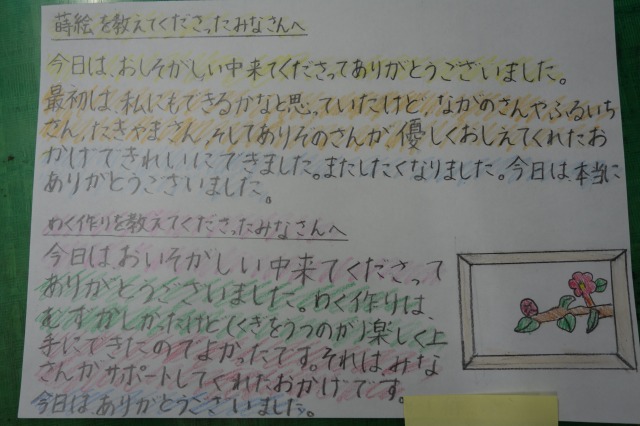 蒔絵を教えてくださったみなさんへ
今日は、おしそがしい中来てくださってありがとうございました。
最初は、私にもできるかなと思っていたけど、ながのさんやふるいち
さん、たきやまさん、そしてありそのさんが、優しくおしえてくれたお
かげできれいにできました。またしたくなりました。今日は、本当に
ありがとうございました。
わく作りを教えてくださったみなさんへ
今日は、おいそがしい中来てくださって
ありがとうございました。わく作りは、
むずかしかったけど(くぎをうつのが)楽しく上
手にできたのでよかったです。それは、みな
さんがサポートしてくれたおかげです。
今日は、ありがとうございました。